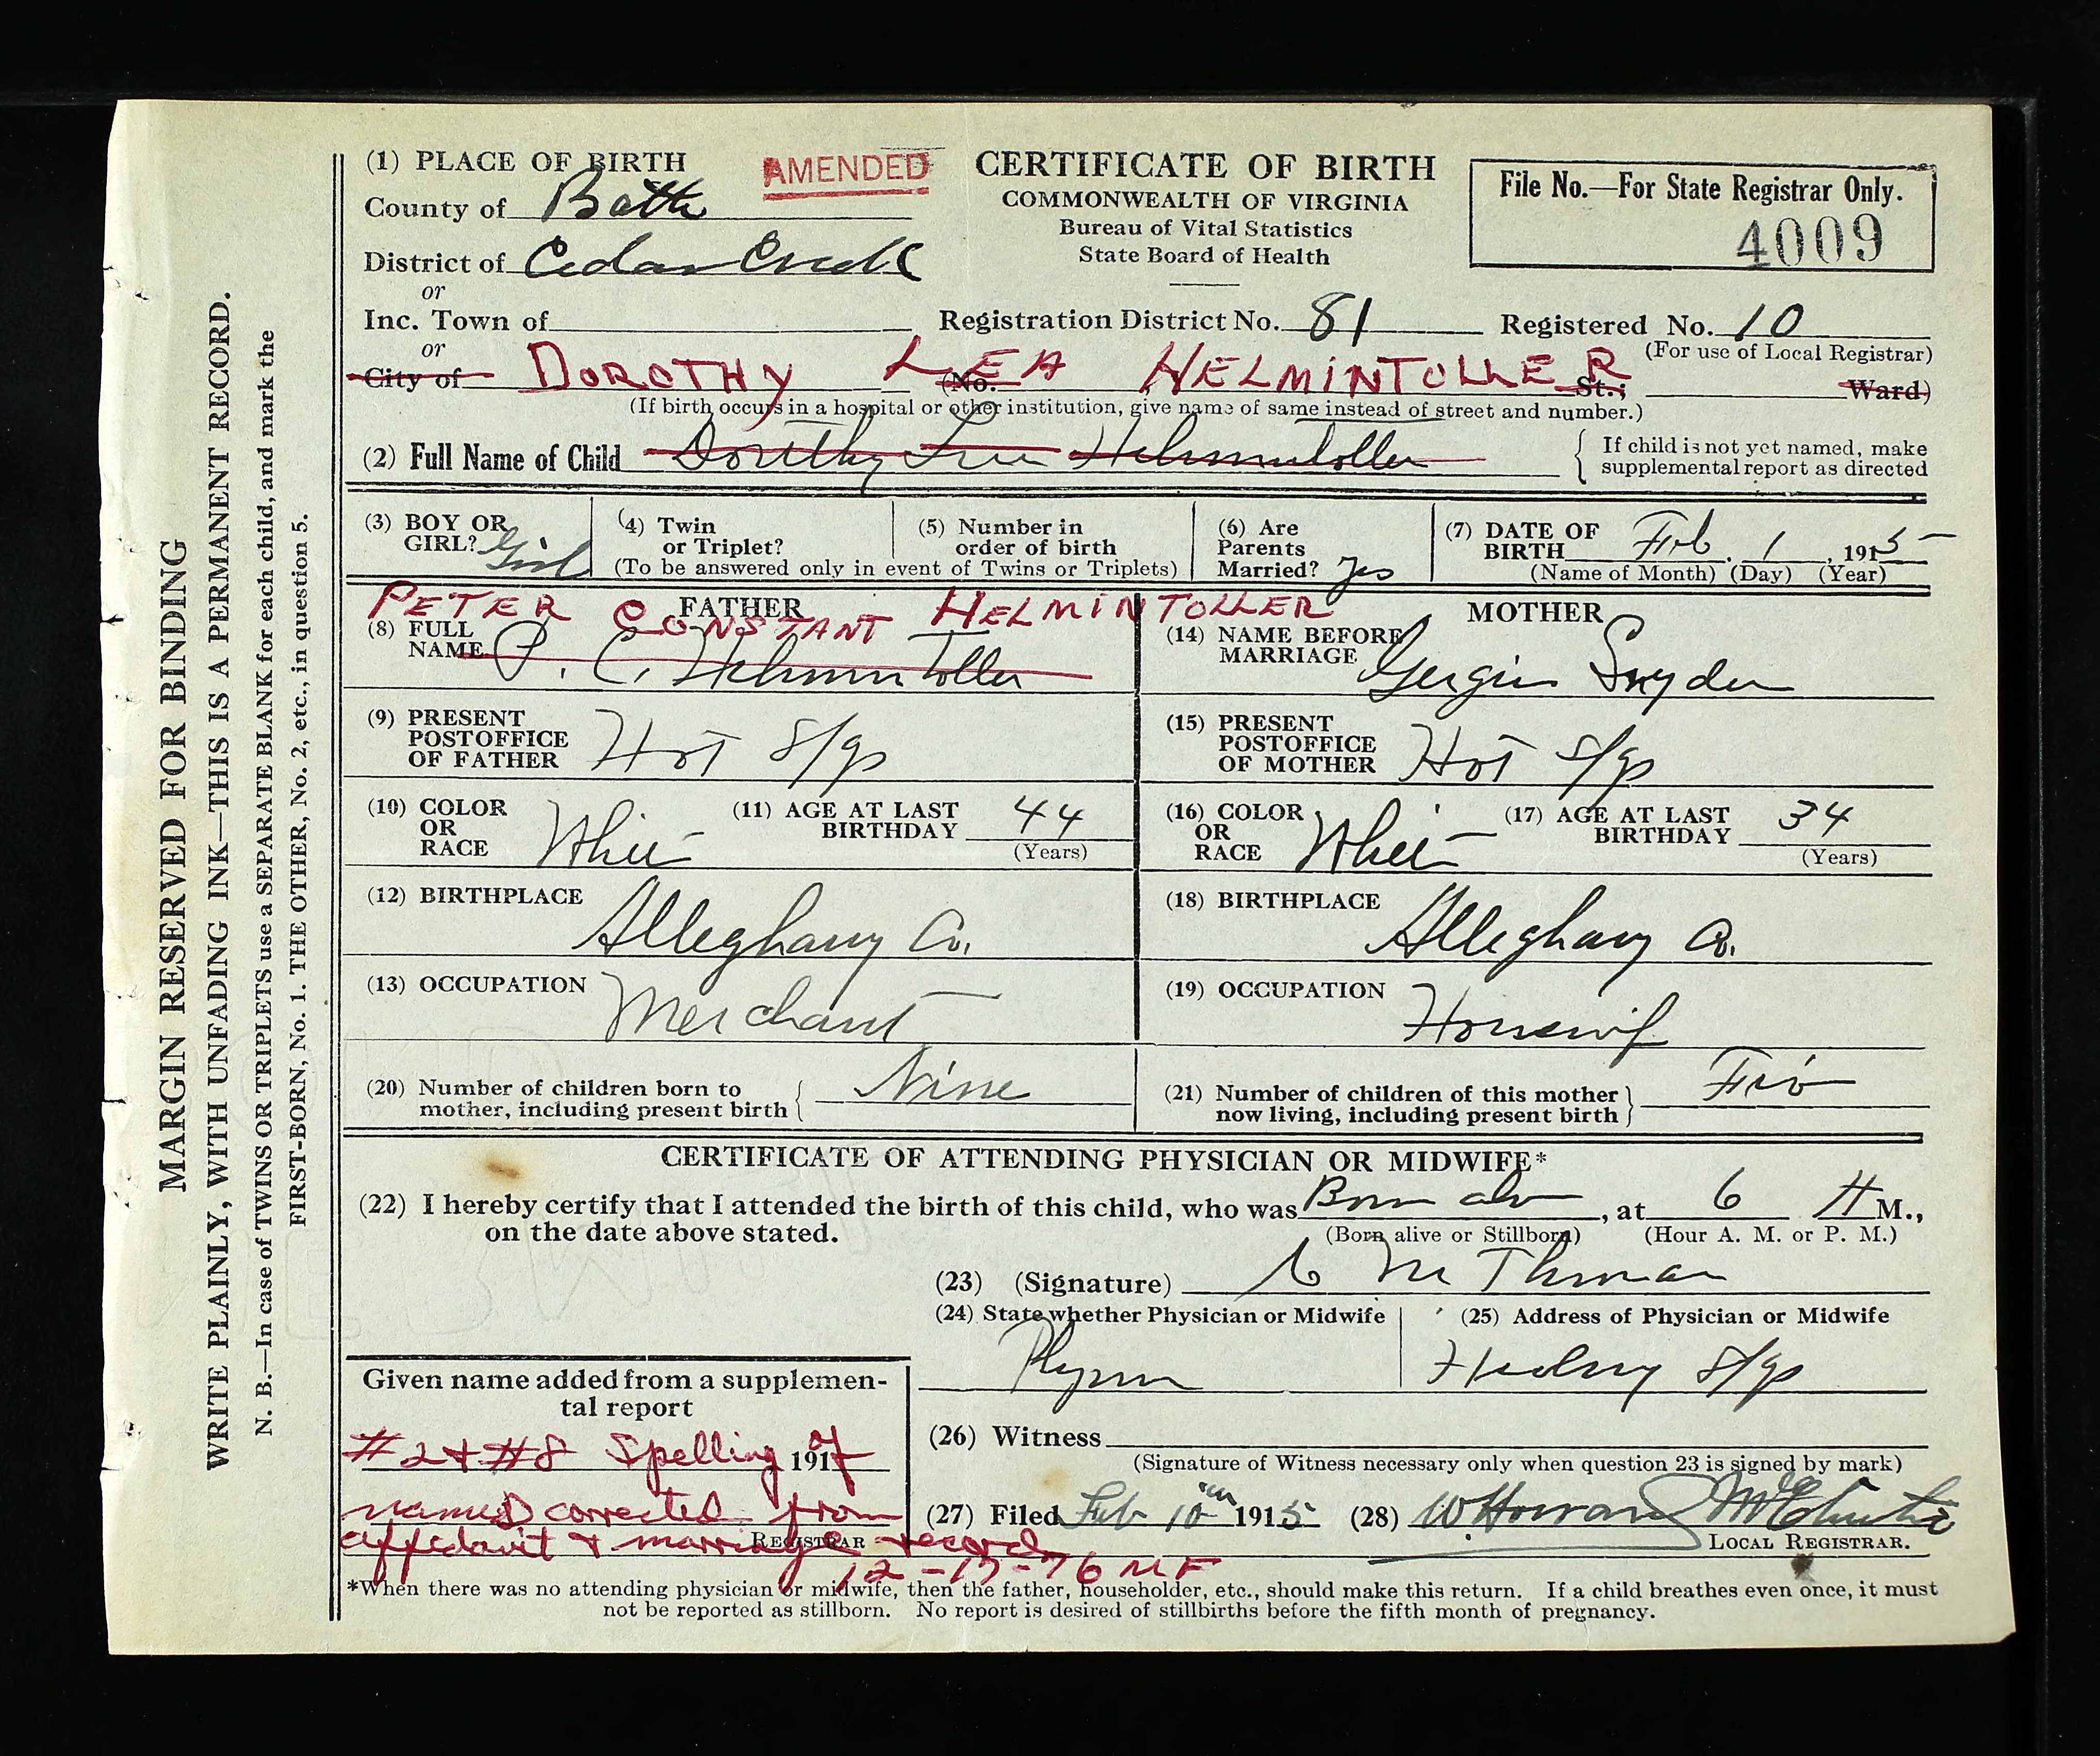 MARGIN RESERVED FOR BINDING
WRITE PLAINLY, WITH UNFADING INK—THIS IS A PERMANENT RECORD.
N. B.—In case of TWINS OR TRIPLETS use a SEPARATE BLANK for each child, and mark the
FIRST-BORN, No. 1. THE OTHER, No. 2, etc., in question 5.
(1) PLACE OF BIRTH
County of Bath
District of Cedar Creek
or
Inc. Town of
or
AMENDED
CERTIFICATE OF BIRTH
COMMONWEALTH OF VIRGINIA
Bureau of Vital Statistics
State Board of Health
File No.—For State Registrar Only.
4009
Registration District No. 81 Registered No. 10
(For use of Local Registrar)
City of (No. St.; Ward)
DOROTHY LEA HELMINTOLLER
(If birth occurs in a hospital or other institution, give name of same instead of street and number.)
(2) Full Name of Child Dorithy Lee Helmintoller
If child is not yet named, make
supplemental report as directed
(3) BOY OR
GIRL? Girl
(4) Twin
or Triplet?
(5) Number in
order of birth
(To be answered only in event of Twins or Triplets)
(6) Are
Parents
Married? Yes
(7) DATE OF
BIRTH Feb. 1, 1915
(Name of Month) (Day) (Year)
PETER CONSTANT HELMINTOLLER
FATHER
(8) FULL
NAME P. C. Helmintoller
MOTHER
(14) NAME BEFORE
MARRIAGE Gergie Snyder
(9) PRESENT
POSTOFFICE
OF FATHER Hot Spgs
(15) PRESENT
POSTOFFICE
OF MOTHER Hot Spgs
(10) COLOR
OR
RACE White
(11) AGE AT LAST
BIRTHDAY 44
(Years)
(16) COLOR
OR
RACE White
(17) AGE AT LAST
BIRTHDAY 34
(Years)
(12) BIRTHPLACE Alleghany Co.
(18) BIRTHPLACE Alleghany Co.
(13) OCCUPATION Merchant
(19) OCCUPATION Housewif
(20) Number of children born to
mother, including present birth Nine
(21) Number of children of this mother
now living, including present birth
CERTIFICATE OF ATTENDING PHYSICIAN OR MIDWIFE*
(22) I hereby certify that I attended the birth of this child, who was Born aliv, at 6 A M.,
on the date above stated.
(Born alive or Stillborn) (Hour A. M. or P. M.)
(23) (Signature)
(24) State whether Physician or Midwife
(25) Address of Physician or Midwife
Spgs
Given name added from a supplemen-
tal report
191
REGISTRAR
#2 + #8 Spelling of
names corrected from
affidavit + marriage record
12-17-76 MF
(26) Witness
(Signature of Witness necessary only when question 23 is signed by mark)
(27) Filed Feb 10th 1915 (28) W Howard
LOCAL REGISTRAR.
*When there was no attending physician or midwife, then the father, householder, etc., should make this return. If a child breathes even once, it must
not be reported as stillborn. No report is desired of stillbirths before the fifth month of pregnancy.